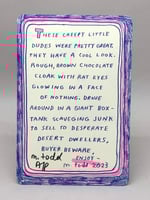 THESE CREEPY LITTLE
DUDES WERE PRETTY GREAT
THEY HAVE A COOL LOOK.
ROUGH, BROWN CHOCOLATE
CLOAK WITH RAT EYES
GLOWING IN A FACE
OF NOTHING. DRIVE
AROUND IN A GIANT BOX-
TANK SCAVENGING JUNK
TO SELL TO DESPERATE
DESERT DWELLERS,
BUYER BEWARE,
ENJOY-
m. todd
AP
m todd 2023